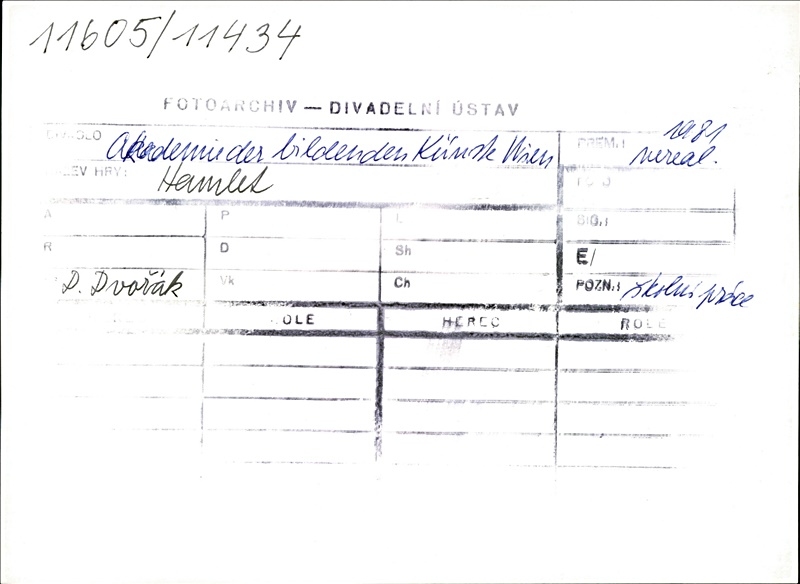 11605/11434
FOTOARCHIV — DIVADELNÍ ÚSTAV
DIVADLO Akademie der bildenden Künste Wien PREM.: 1981 nereal.
ZEV HRY: Hamlet
A P L SIG.:
R D Sh E/
D. Dvořák Vk Ch POZN.: školní práce
OLE HEREC ROLE